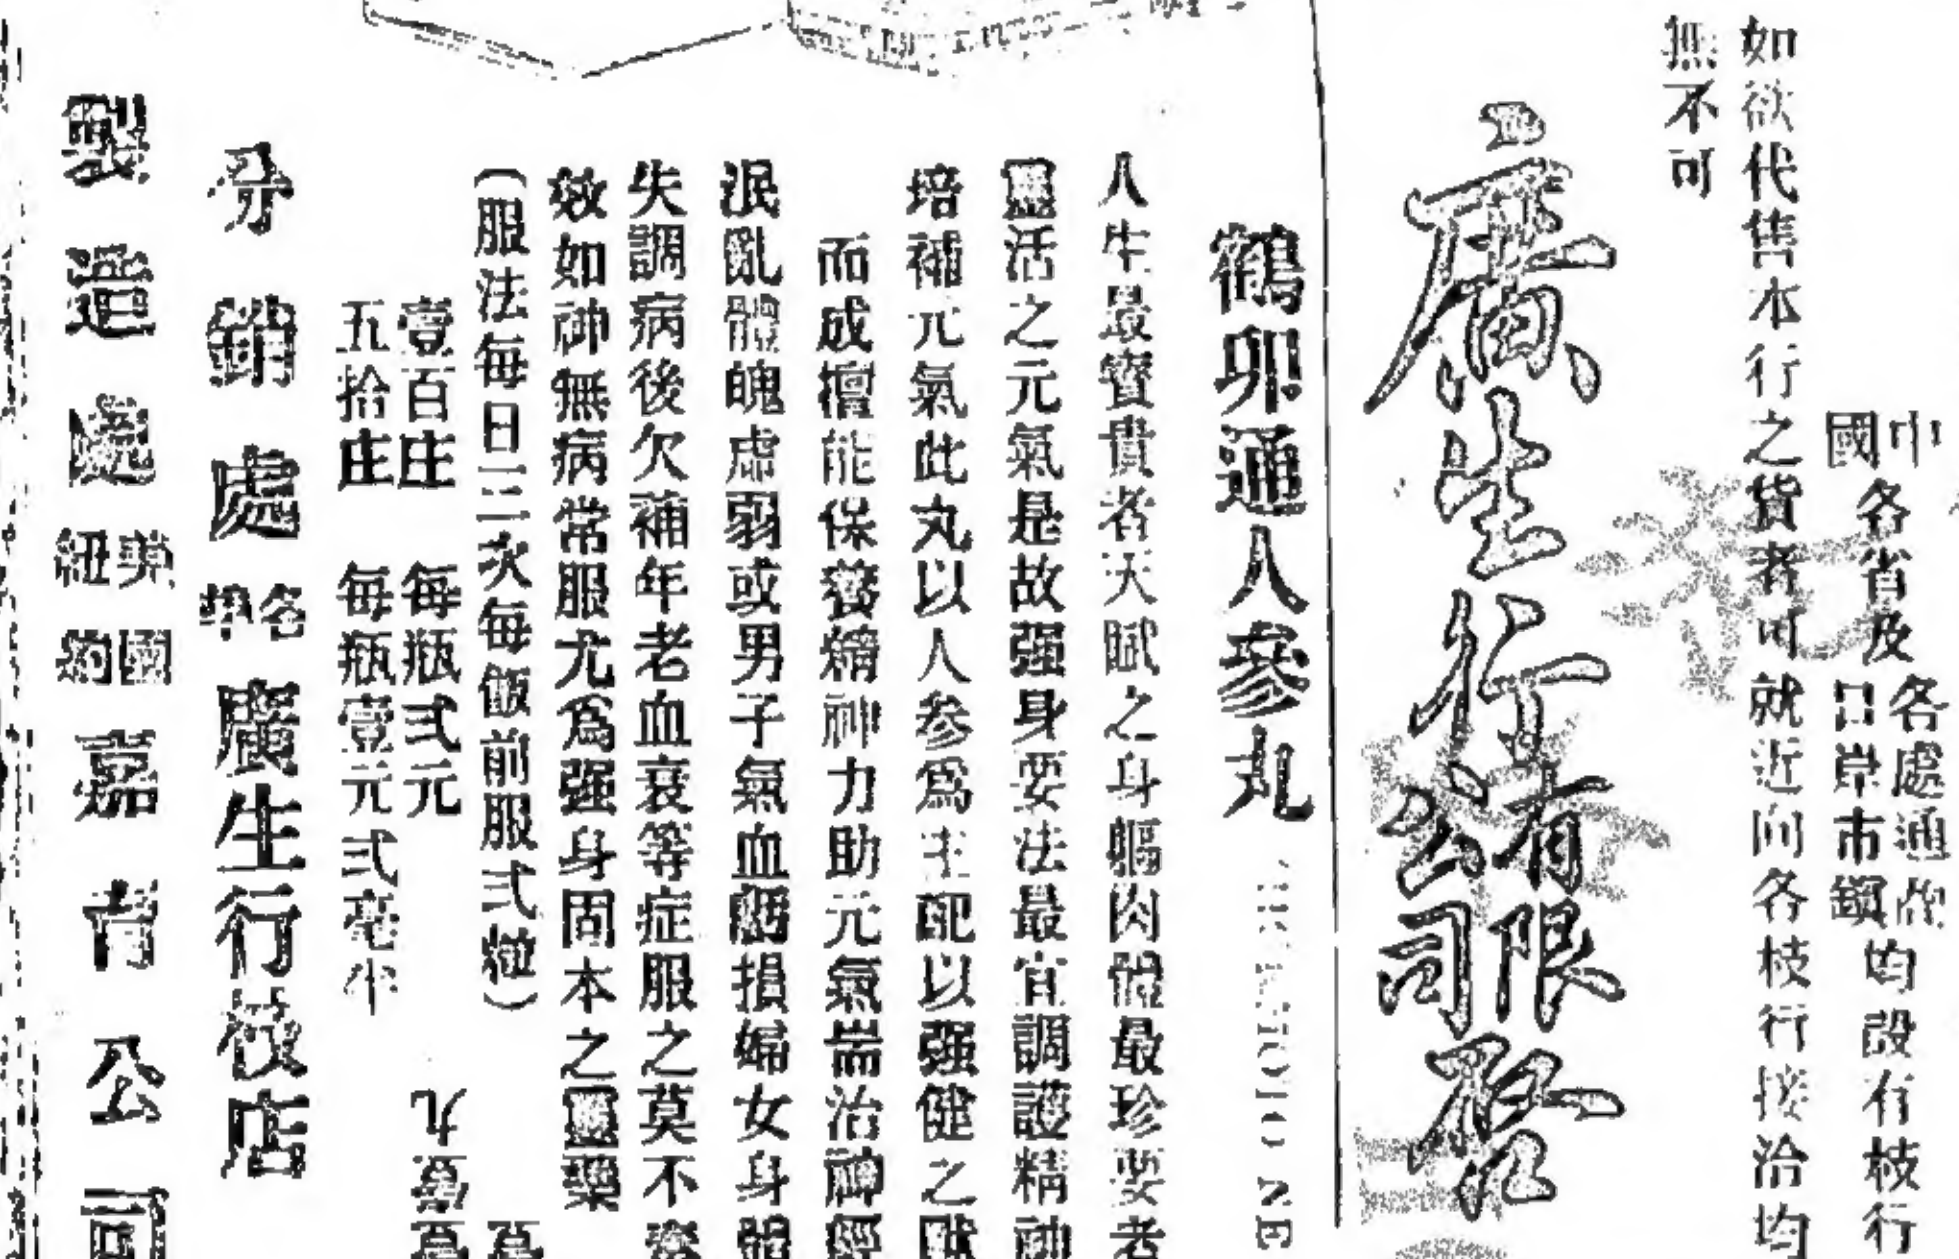 中國各省及各處通商口岸市鎮均設有枝行
如欲代售本行之貨者可就近向各枝行接洽均
無不可
廣生行有限公司啓
鶴卵通人參丸
人生最寶貴者天賦之身軀肉體最珍要者
靈活之元氣是故强身要法最宜調護精神
培補元氣此丸以人參為主配以强健之獸
而成擅能保養精神力助元氣耑治神經
泯亂體魄虛弱或男子氣血虧損婦女身體
失調病後欠補年老血衰等症服之莫不
效如神無病常服尤為强身固本之靈藥
(服法每日三次每飯前服弍粒)
壹百庄 每瓶弍元
五拾庄 每瓶壹元弍毫半
分銷處 各埠 廣生行枝店
製造處 美國紐約 嘉青公司